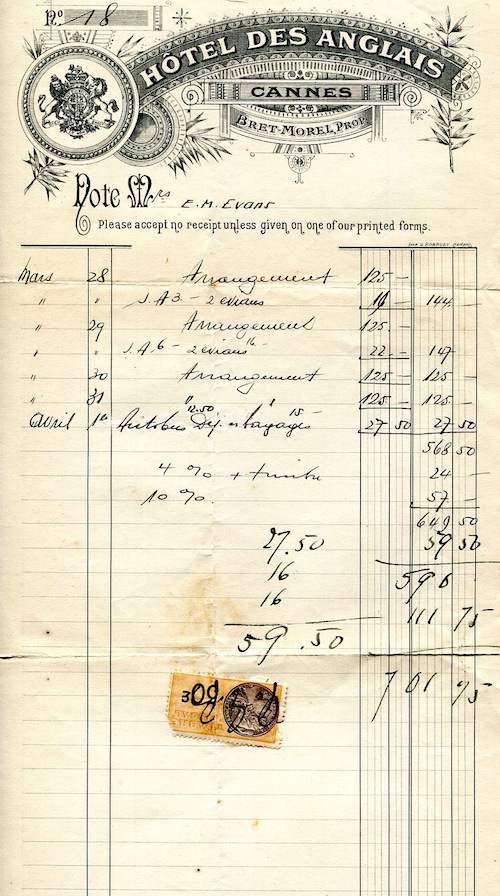 No 18
HÔTEL DES ANGLAIS
CANNES
BRET-MOREL, PROP.
Note Mrs E. M. Evans
Please accept no receipt unless given on one of our printed forms.
Mars 28 Arrangement 125 —
" " J. A 3 — 2 evians 144 —
" 29 Arrangement 125 —
" " J. A 6 — 2 evians 16 — 22 — 147
" 30 Arrangement 125 — 125 —
" 31 " " 125 — 125 —
12.50 15 —
Avril 1er Autobus Déj. et bagages 27 50 27 50
568 50
4 % + timbre 24 —
10 %. 57 —
649 50
27.50 59 50
16 590
16 111 75
59.50
701 75